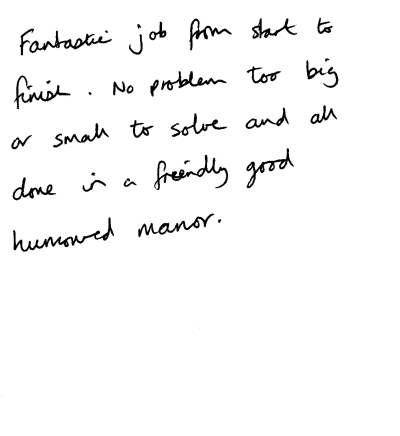 Fantastic job from start to
finish. No problem too big
or small to solve and all
done in a freindly good
humoured manor.